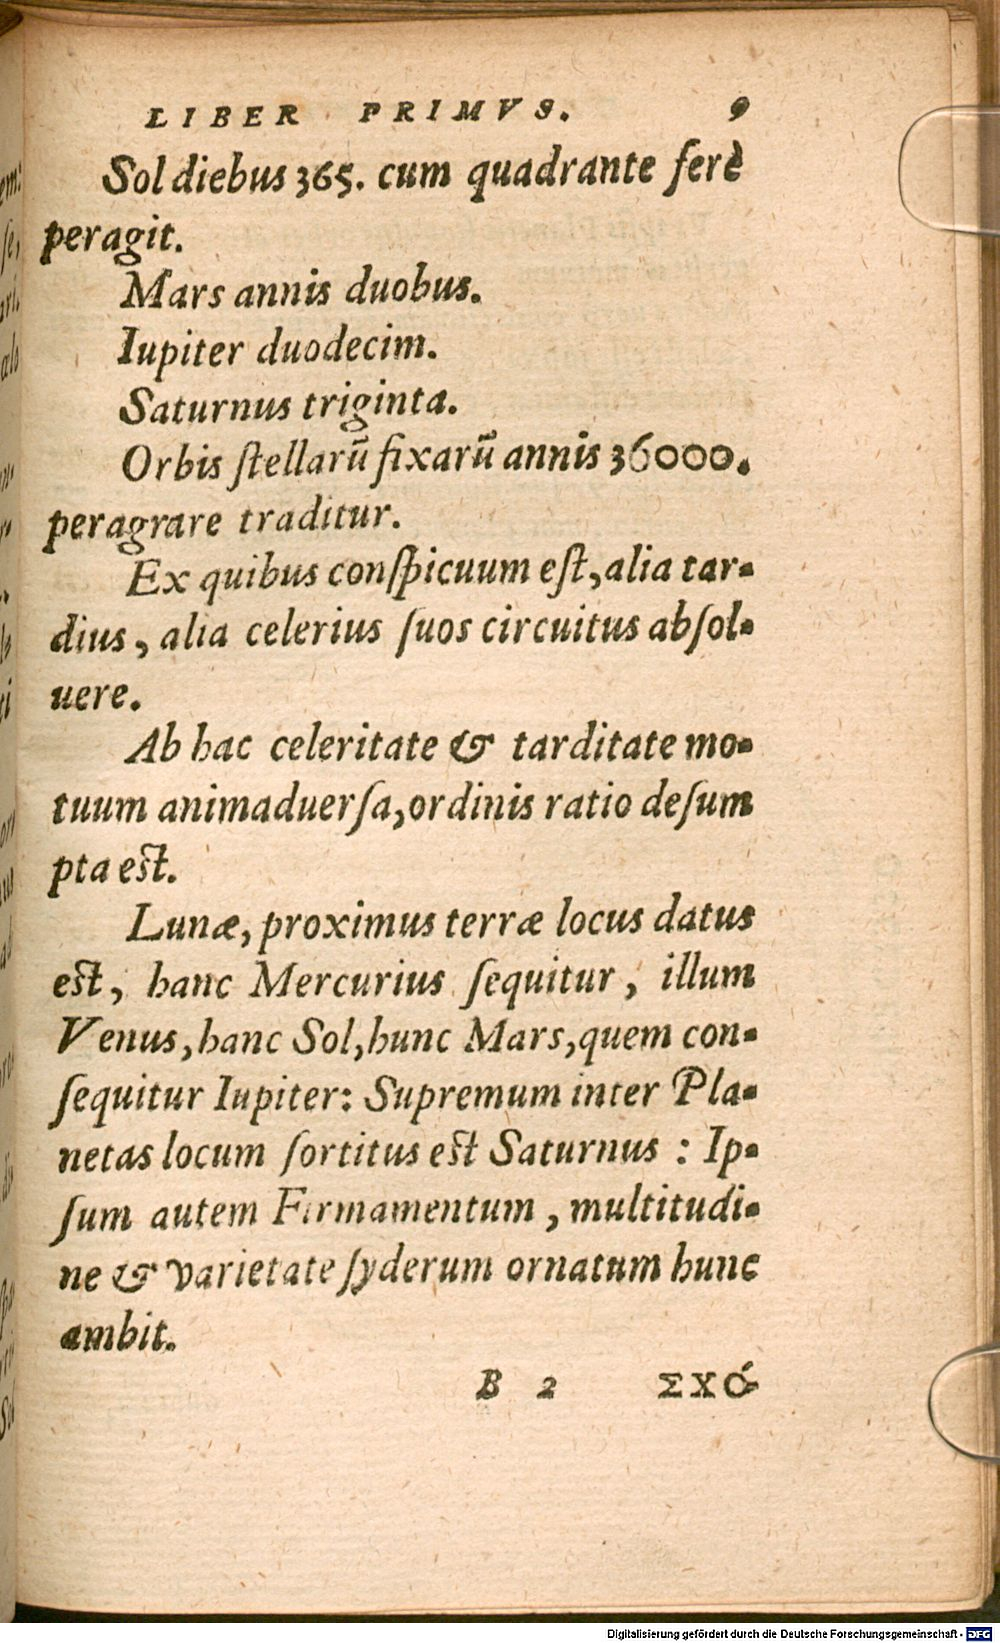 LIBER PRIMVS. 9
Sol diebus 365. cum quadrante ferè
peragit.
Mars annis duobus.
Iupiter duodecim.
Saturnus triginta.
Orbis ſtellarũ fixarũ annis 36000.
peragrare traditur.
Ex quibus conſpicuum eſt, alia tar-
dius, alia celerius ſuos circuitus abſol-
uere.
Ab hac celeritate & tarditate mo-
tuum animaduerſa, ordinis ratio deſum
pta eſt.
Lunæ, proximus terræ locus datus
eſt, hanc Mercurius ſequitur, illum
Venus, hanc Sol, hunc Mars, quem con-
ſequitur Iupiter: Supremum inter Pla-
netas locum ſortitus eſt Saturnus: Ip-
ſum autem Firmamentum, multitudi-
ne & varietate ſyderum ornatum hunc
ambit.
B 2 ΣΧΌ-
Digitalisierung gefördert durch die Deutsche Forschungsgemeinschaft - DFG